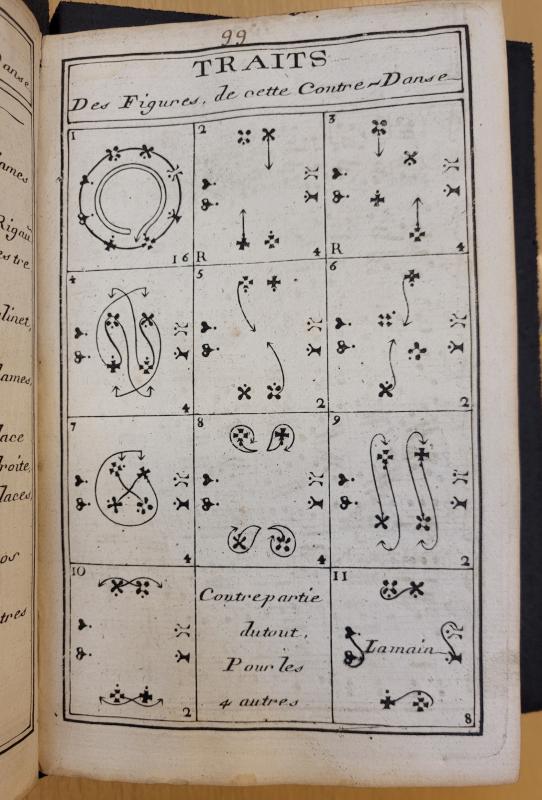 99
TRAITS
Des Figures, de cette Contre-Danse
1
16
2
R
4
3
R
4
4
4
5
2
6
2
7
4
8
4
9
2
10
2
Contrepartie
du tout,
Pour les
4 autres
11
Lamain
8
anse
ames
Rigau
estre
linet,
lames,
lace
roite,
laces,
os
tres